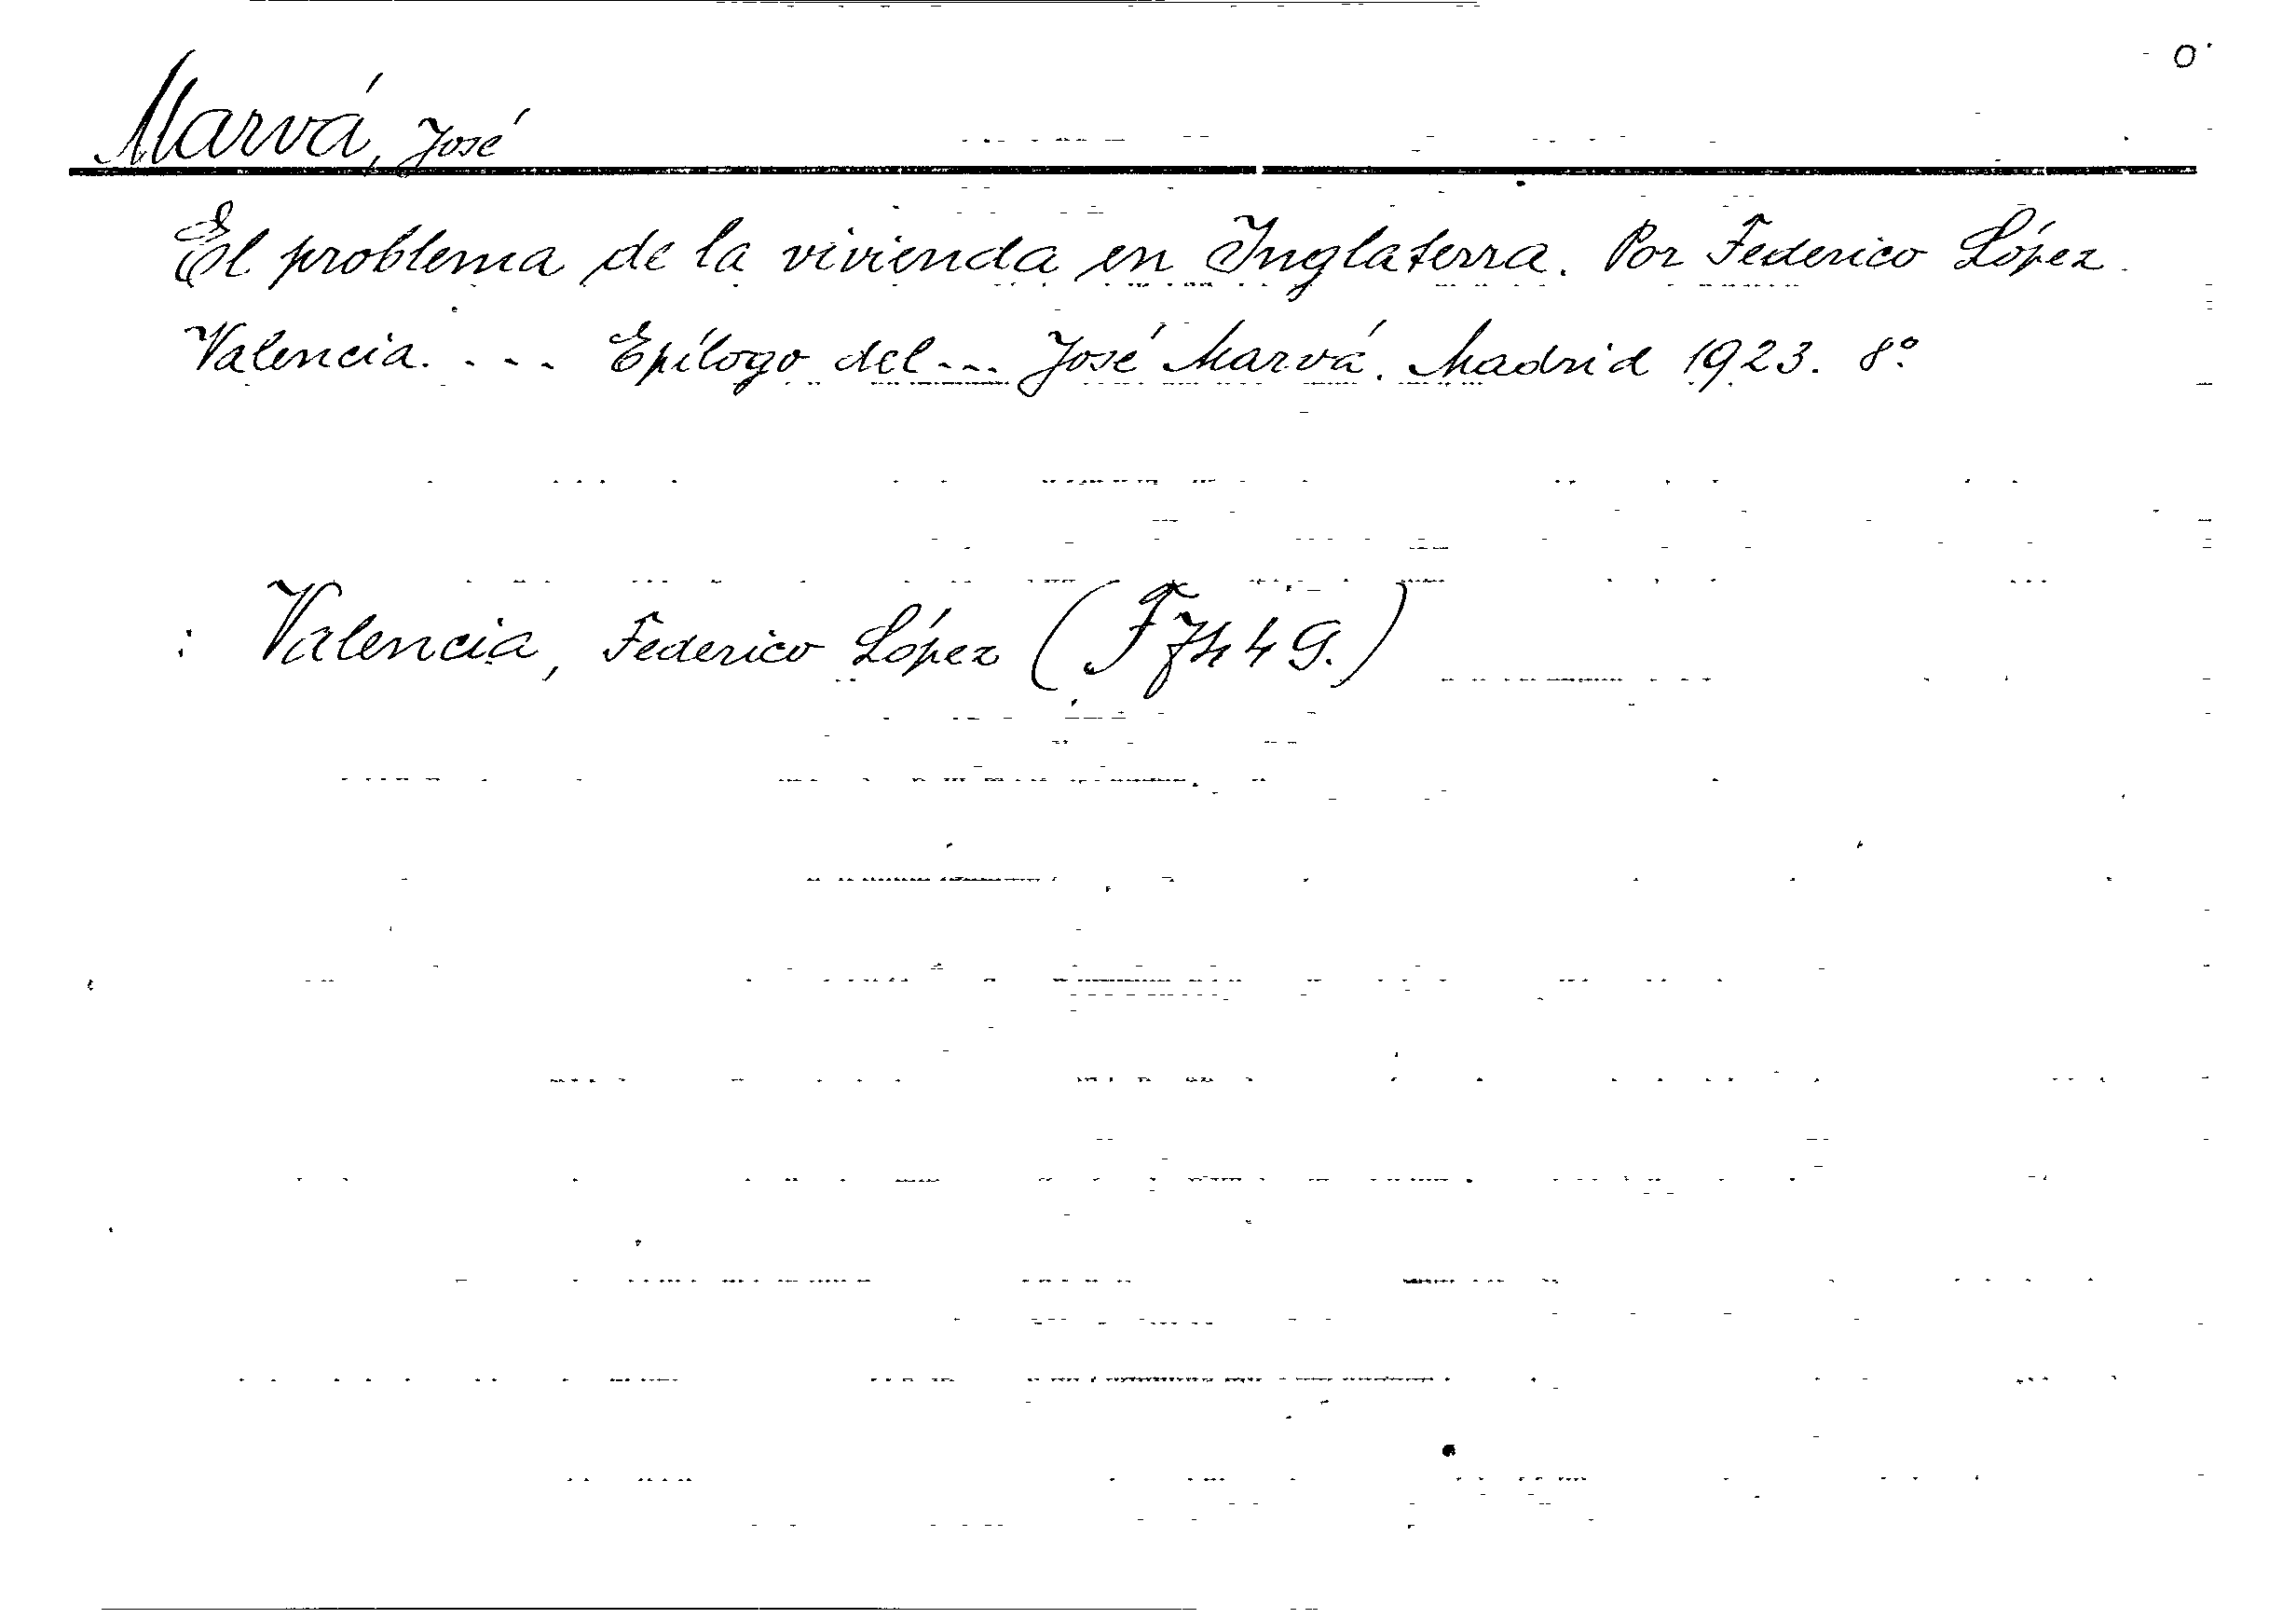 O
Marvá, José
El problema de la vivienda en Inglaterra. Por Federico López.
Valencia. ... Epílogo del ... José Marvá. Madrid 1923. 8º
: Valencia, Federico López (F 7449.)